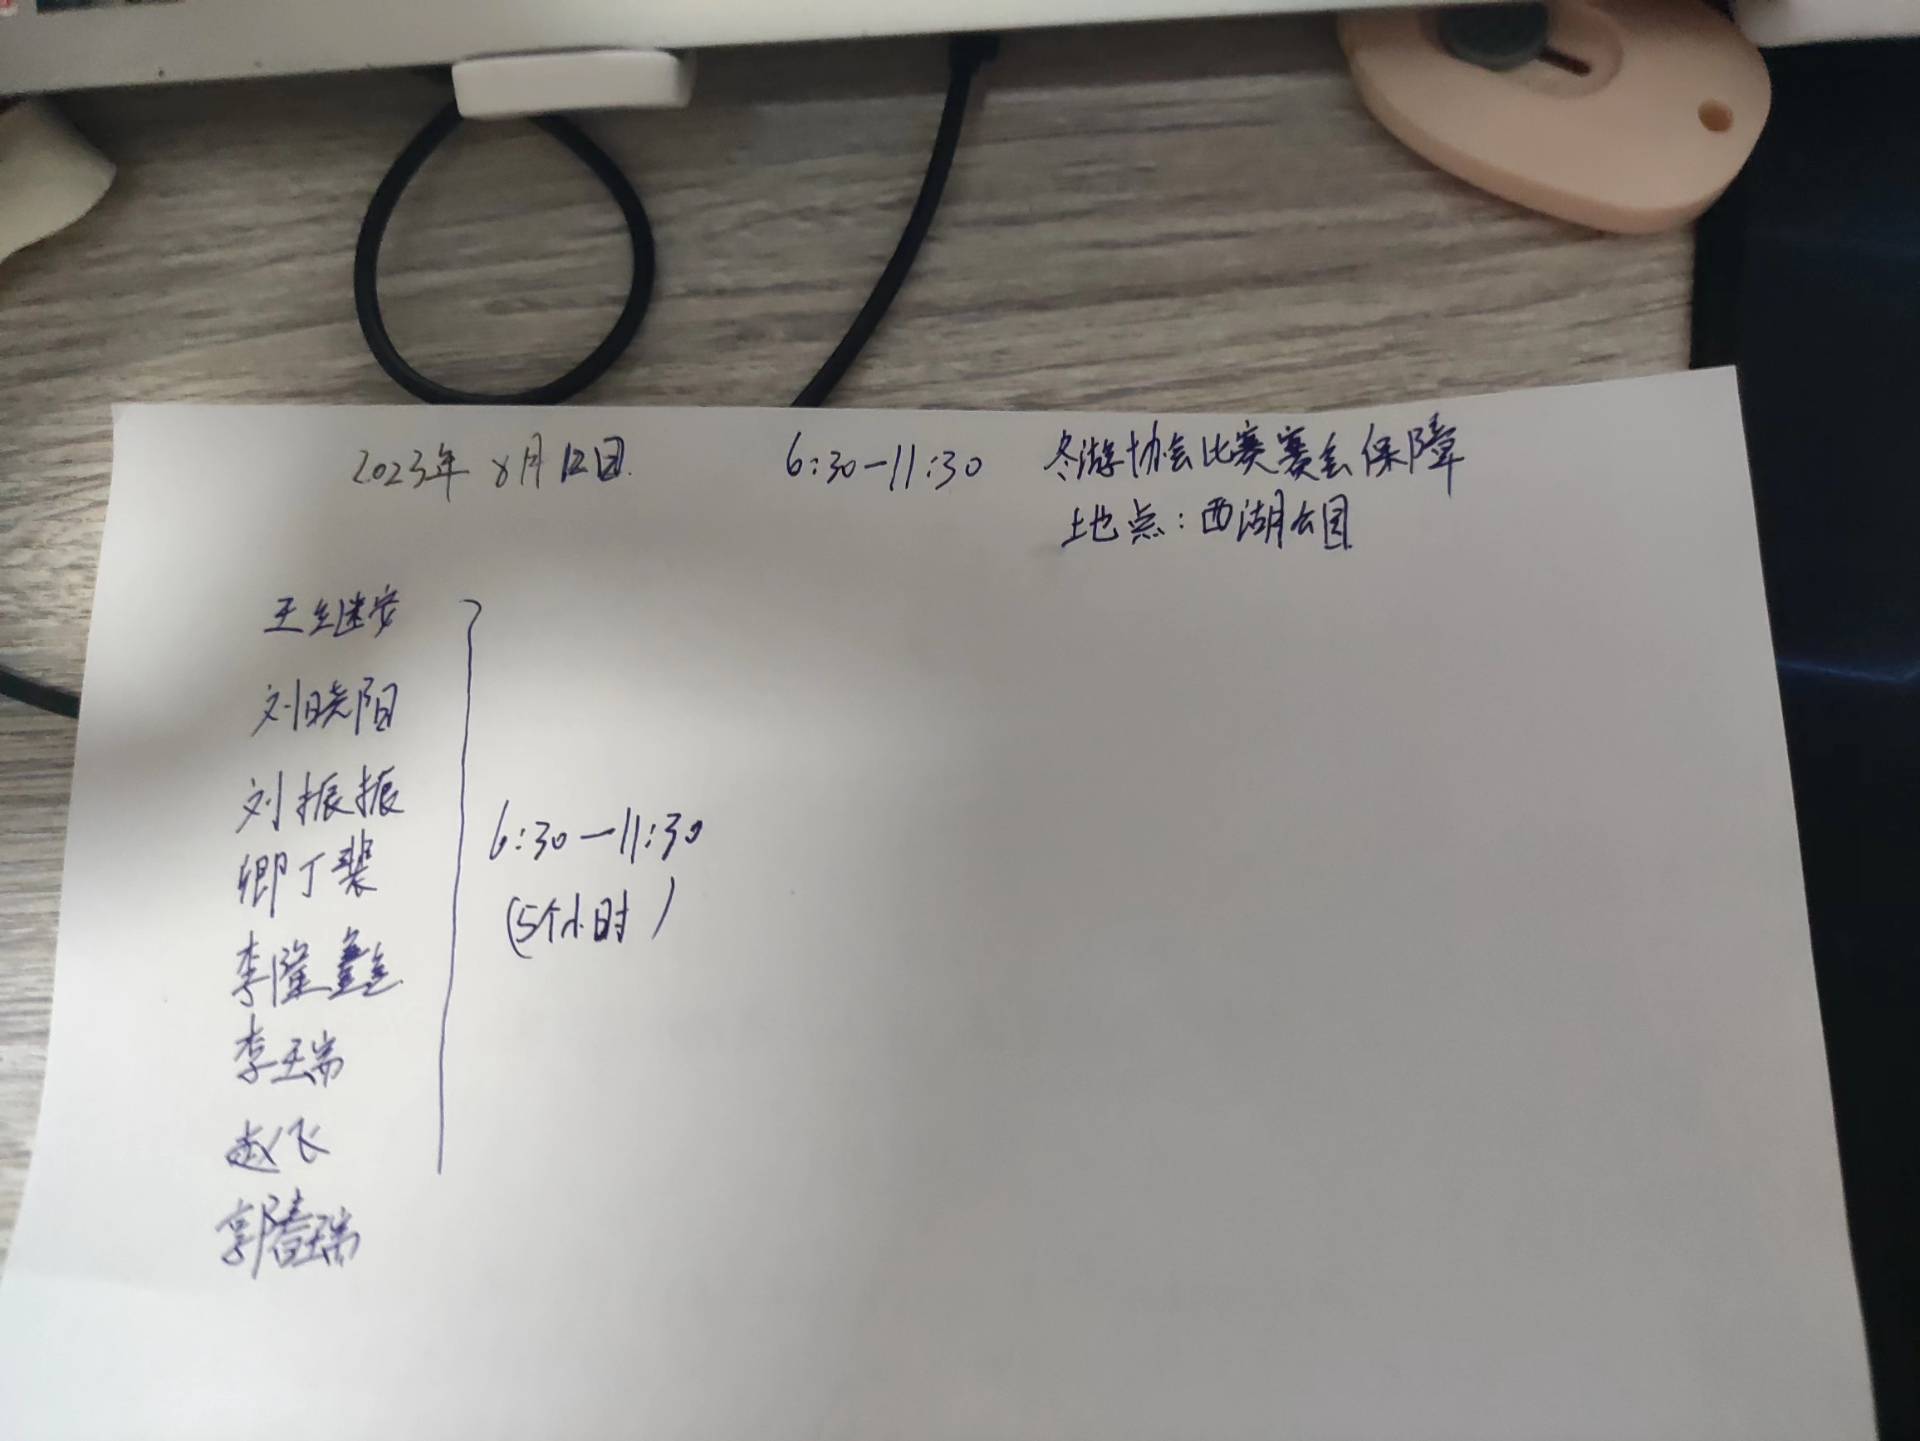 2023年 8月12日 6:30—11:30 冬游协会比赛赛会保障
地点：西湖公园
王继安
刘晓阳
刘振振
卿丁裴
李隆鑫
李瑞
赵飞
郭瑞
6:30—11:30
(5个小时)